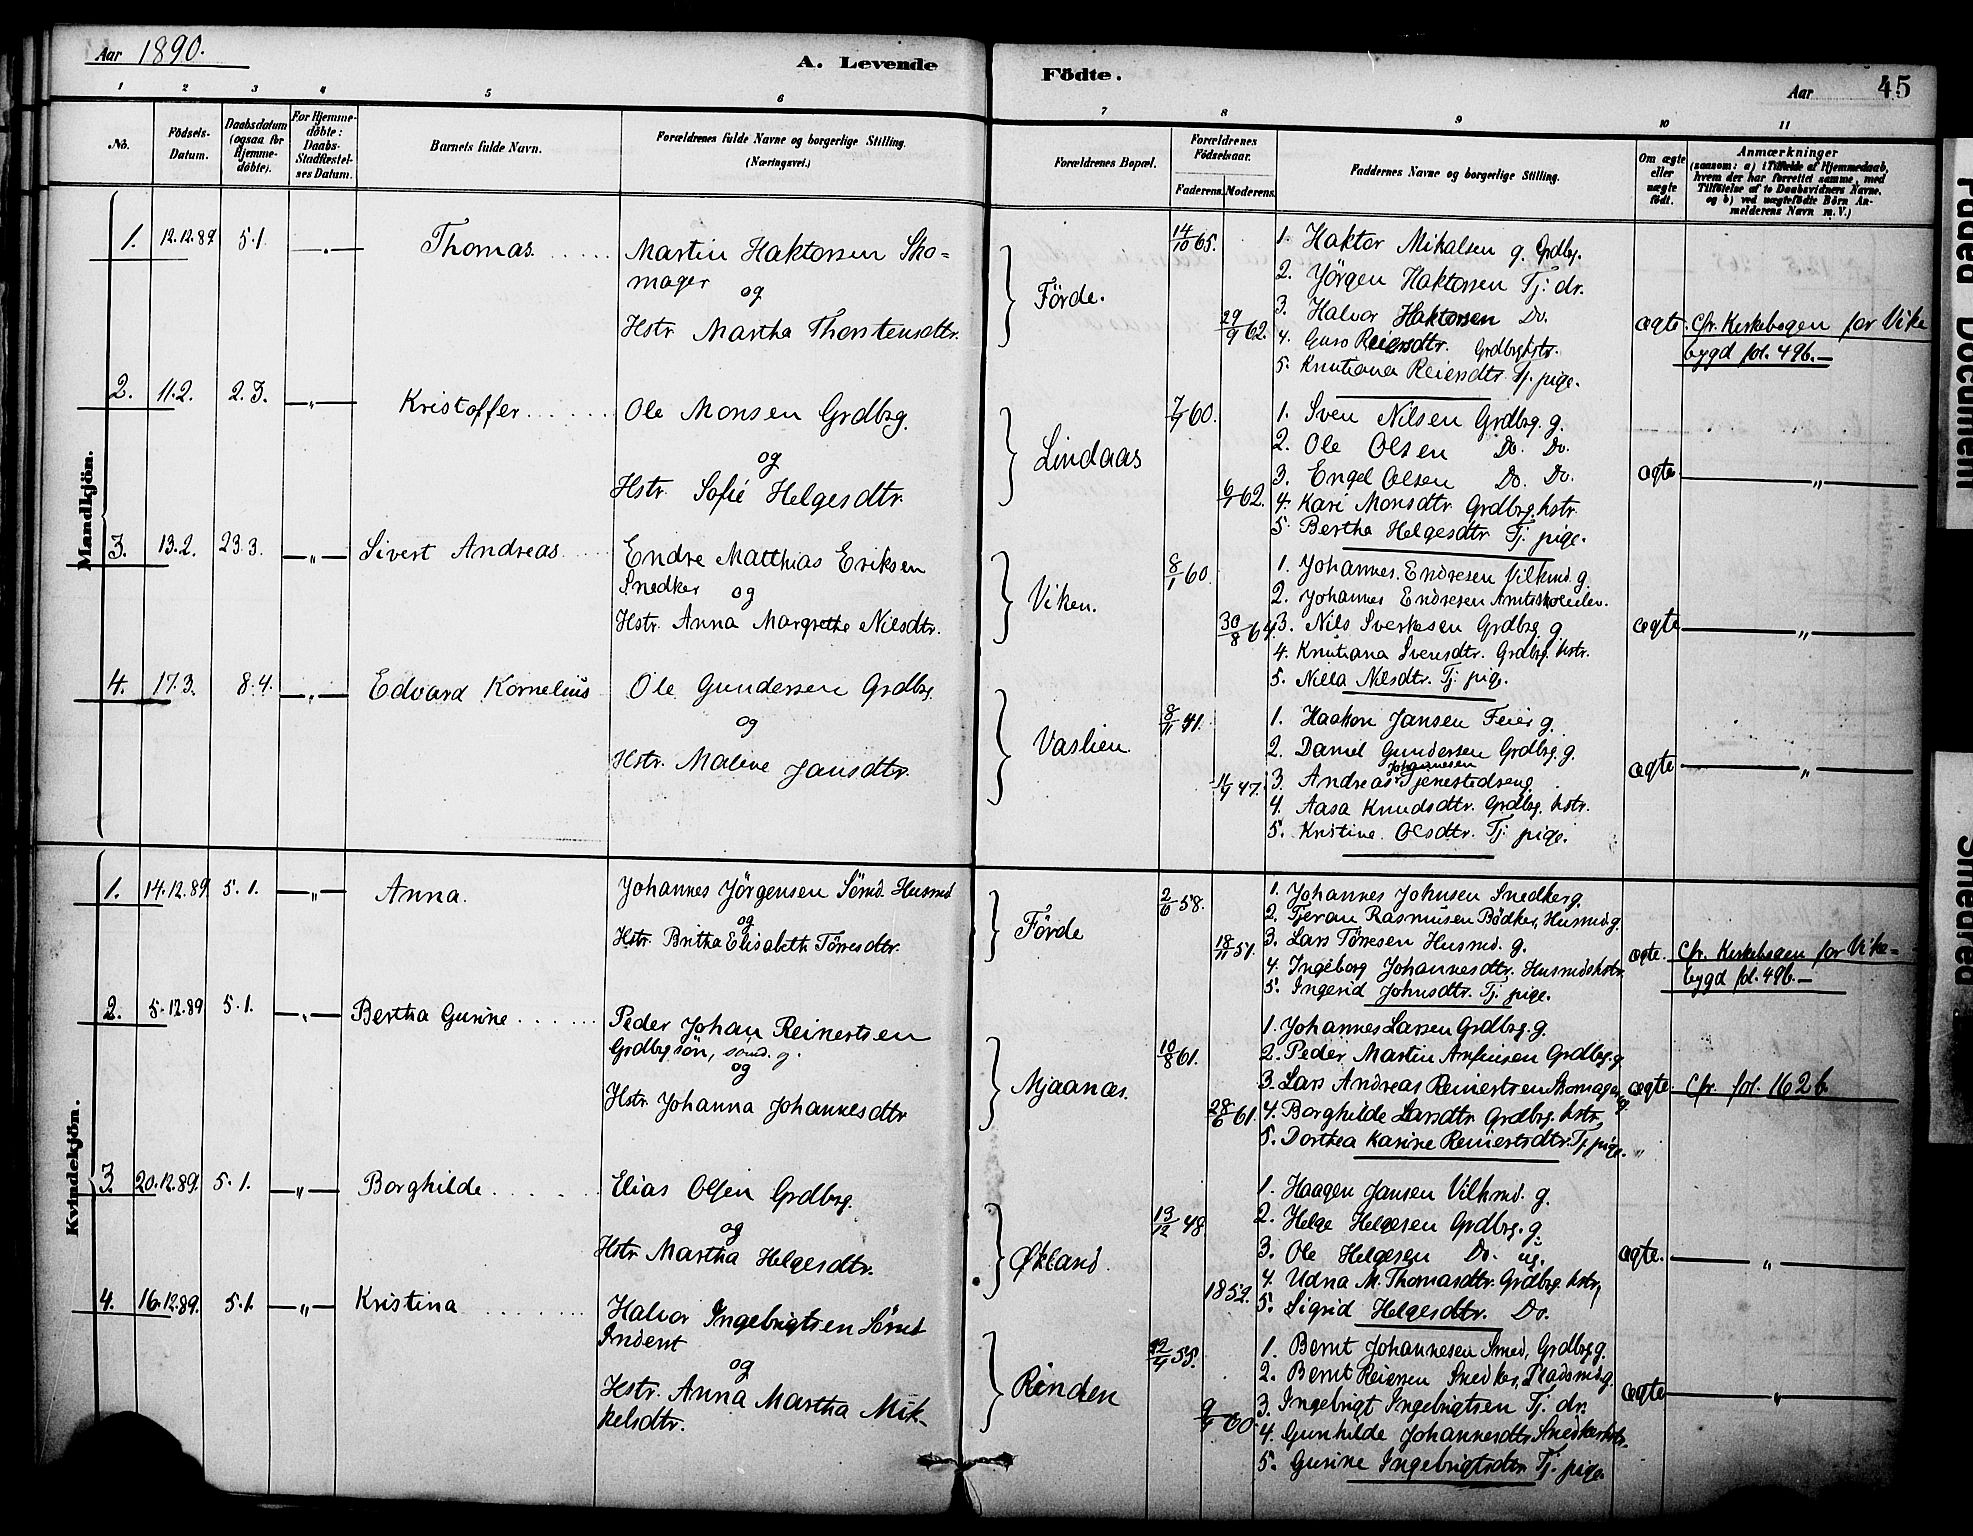 Aar 1890.
A. Levende Födte.
Aar 45
1 2 3 4 5 6 7 8 9 10 11
No.
Födsels-Datum.
Daabsdatum (ogsaa for Hjemme-döbte).
For Hjemme-döbte: Daabs-Stadfæstel-ses Datum.
Barnets fulde Navn.
Forældrenes fulde Navne og borgerlige Stilling. (Næringsvei.)
Forældrenes Bopæl.
Forældrenes Födselsaar.
Faderens. Moderens.
Faddernes Navne og borgerlige Stilling.
Om ægte eller uægte födt.
Anmærkninger
(saasom: a) i Tilfælde af Hjemmedaab,
hvem der har forrettet samme, med
Tilföielse af to Daabsvidners Navne,
og b) ved uægtefödte Börn An-
melderens Navn m. V.)
Mandkjön.
1. 12.12.89 5.1. Thomas.
Martin Haktorsen Sko-
mager
og
Hstr. Martha Thorstensdtr.
Förde.
14/10 65.
29/9 62.
1. Haktor Mikalsen g. Grdbg.
2. Jörgen Haktorsen Tj: dr.
3. Halvor Haktorsen Do.
4. Guro Reiersdtr. Grdbrghstr.
5. Knutiana Reiersdtr. Tj. pige.
ægte. Cfr. Kirkebogen for Vike
bygd fol. 49b.
2. 11.2. 2.3. „ Kristoffer
Ole Monsen Grdbrg.
og
Hstr. Sofie Helgesdtr.
Lindaas
60.
62.
1. Sven Nilsen Grdbrg. g.
2. Ole Olsen Do. Do.
3. Engel Olsen Do. Do.
4. Kari Monsdtr. Grdbrg. hstr.
5. Bertha Helgesdtr. Tj. pige.
ægte „
3. 13.2. 23.3. „ Sivert Andreas
Endre Matthias Eriksen
Snedker og
Hstr. Anna Margrethe Nilsdtr.
Viken.
8/1 60.
30/8 64.
1. Johannes Endresen g.
2. Johannes Endresen
3. Nils Sverkesen Grdbrg. g.
4. Knutiana Svensdtr. Grdbrg. hstr.
5. Nilla Nilsdtr. Tj. pige.
ægte „
4. 17.3. 8.4. „ Edvard Kornelius
Ole Gundersen Grdbrg.
og
Hstr. Malene Jansdtr.
Vaslien.
8/11 41.
47.
1. Haakon Jansen Feier g.
2. Daniel Gundersen Grdbrg. g.
3. Andreas Johannesen
4. Aasa Knudsdtr. Grdbrg. hstr.
5. Kristine Olsdtr. Tj. pige.
ægte „
Kvindekjön.
1. 14.12.89. 5.1. „ Anna.
Johannes Jörgensen Sömd. Husmd
og
Hstr. Britha Elisabeth Törresdtr.
Förde
2/6 58.
18/11 51.
1. Johannes Johnsen Snedker g.
2. Tjeran Rasmusen Bödker, Husmd. g.
3. Lars Törresen Husmd. g.
4. Ingeborg Johannesdtr. Husmdshstr.
5. Ingerid Johnsdtr. Tj. pige.
ægte. Cfr. Kirkebogen for Vike-
bygd fol. 49b.
2. 5.12.89 5.1. „ Bertha Gurine
Peder Johan Reinertsen
Grdbrg sön, sömd. g.
og
Hstr. Johanna Johannesdtr
Mjaanæs.
10/8 61.
28/6 61.
1. Johannes Larsen Grdbrg. g.
2. Peder Martin Anfinsen Grdbrg. g
3. Lars Andreas Reinertsen Skomager g.
4. Borghilde Larsdtr. Grdbrg. hstr.
5. Dorthea Karine Reinertsdtr. Tj. pige.
ægte. Cfr. fol. 162 b.
3. 20.12.89. 5.1. „ Borghilde
Elias Olsen Grdbrg.
og
Hstr. Martha Helgesdtr.
Økland.
13/12 48.
1852.
1. Haagen Jansen g.
2. Helge Helgesen Grdbrg. g.
3. Ole Helgesen Do. ug.
4. Udna M. Thomasdtr. Grdbrg. hstr,
5. Sigrid Helgesdtr. Do.
ægte. „
4. 16.12.89. 5.1. „ Kristina
Halvor Ingebrigtsen Sömd
Indent
og
Hstr. Anna Martha Mik-
kelsdtr.
Rinden
55.
60
1. Bernt Johannesen Smed, Grdbrg g.
2. Bernt Reiersen Snedker, Pladsmd. g.
3. Ingebrigt Ingebrigtsen Tj. dr.
4. Gunhilde Johannesdtr Snedkerhstr.
5. Gurine Ingebrigtsdtr Tj. pige
ægte „
Faded Document
Smeared